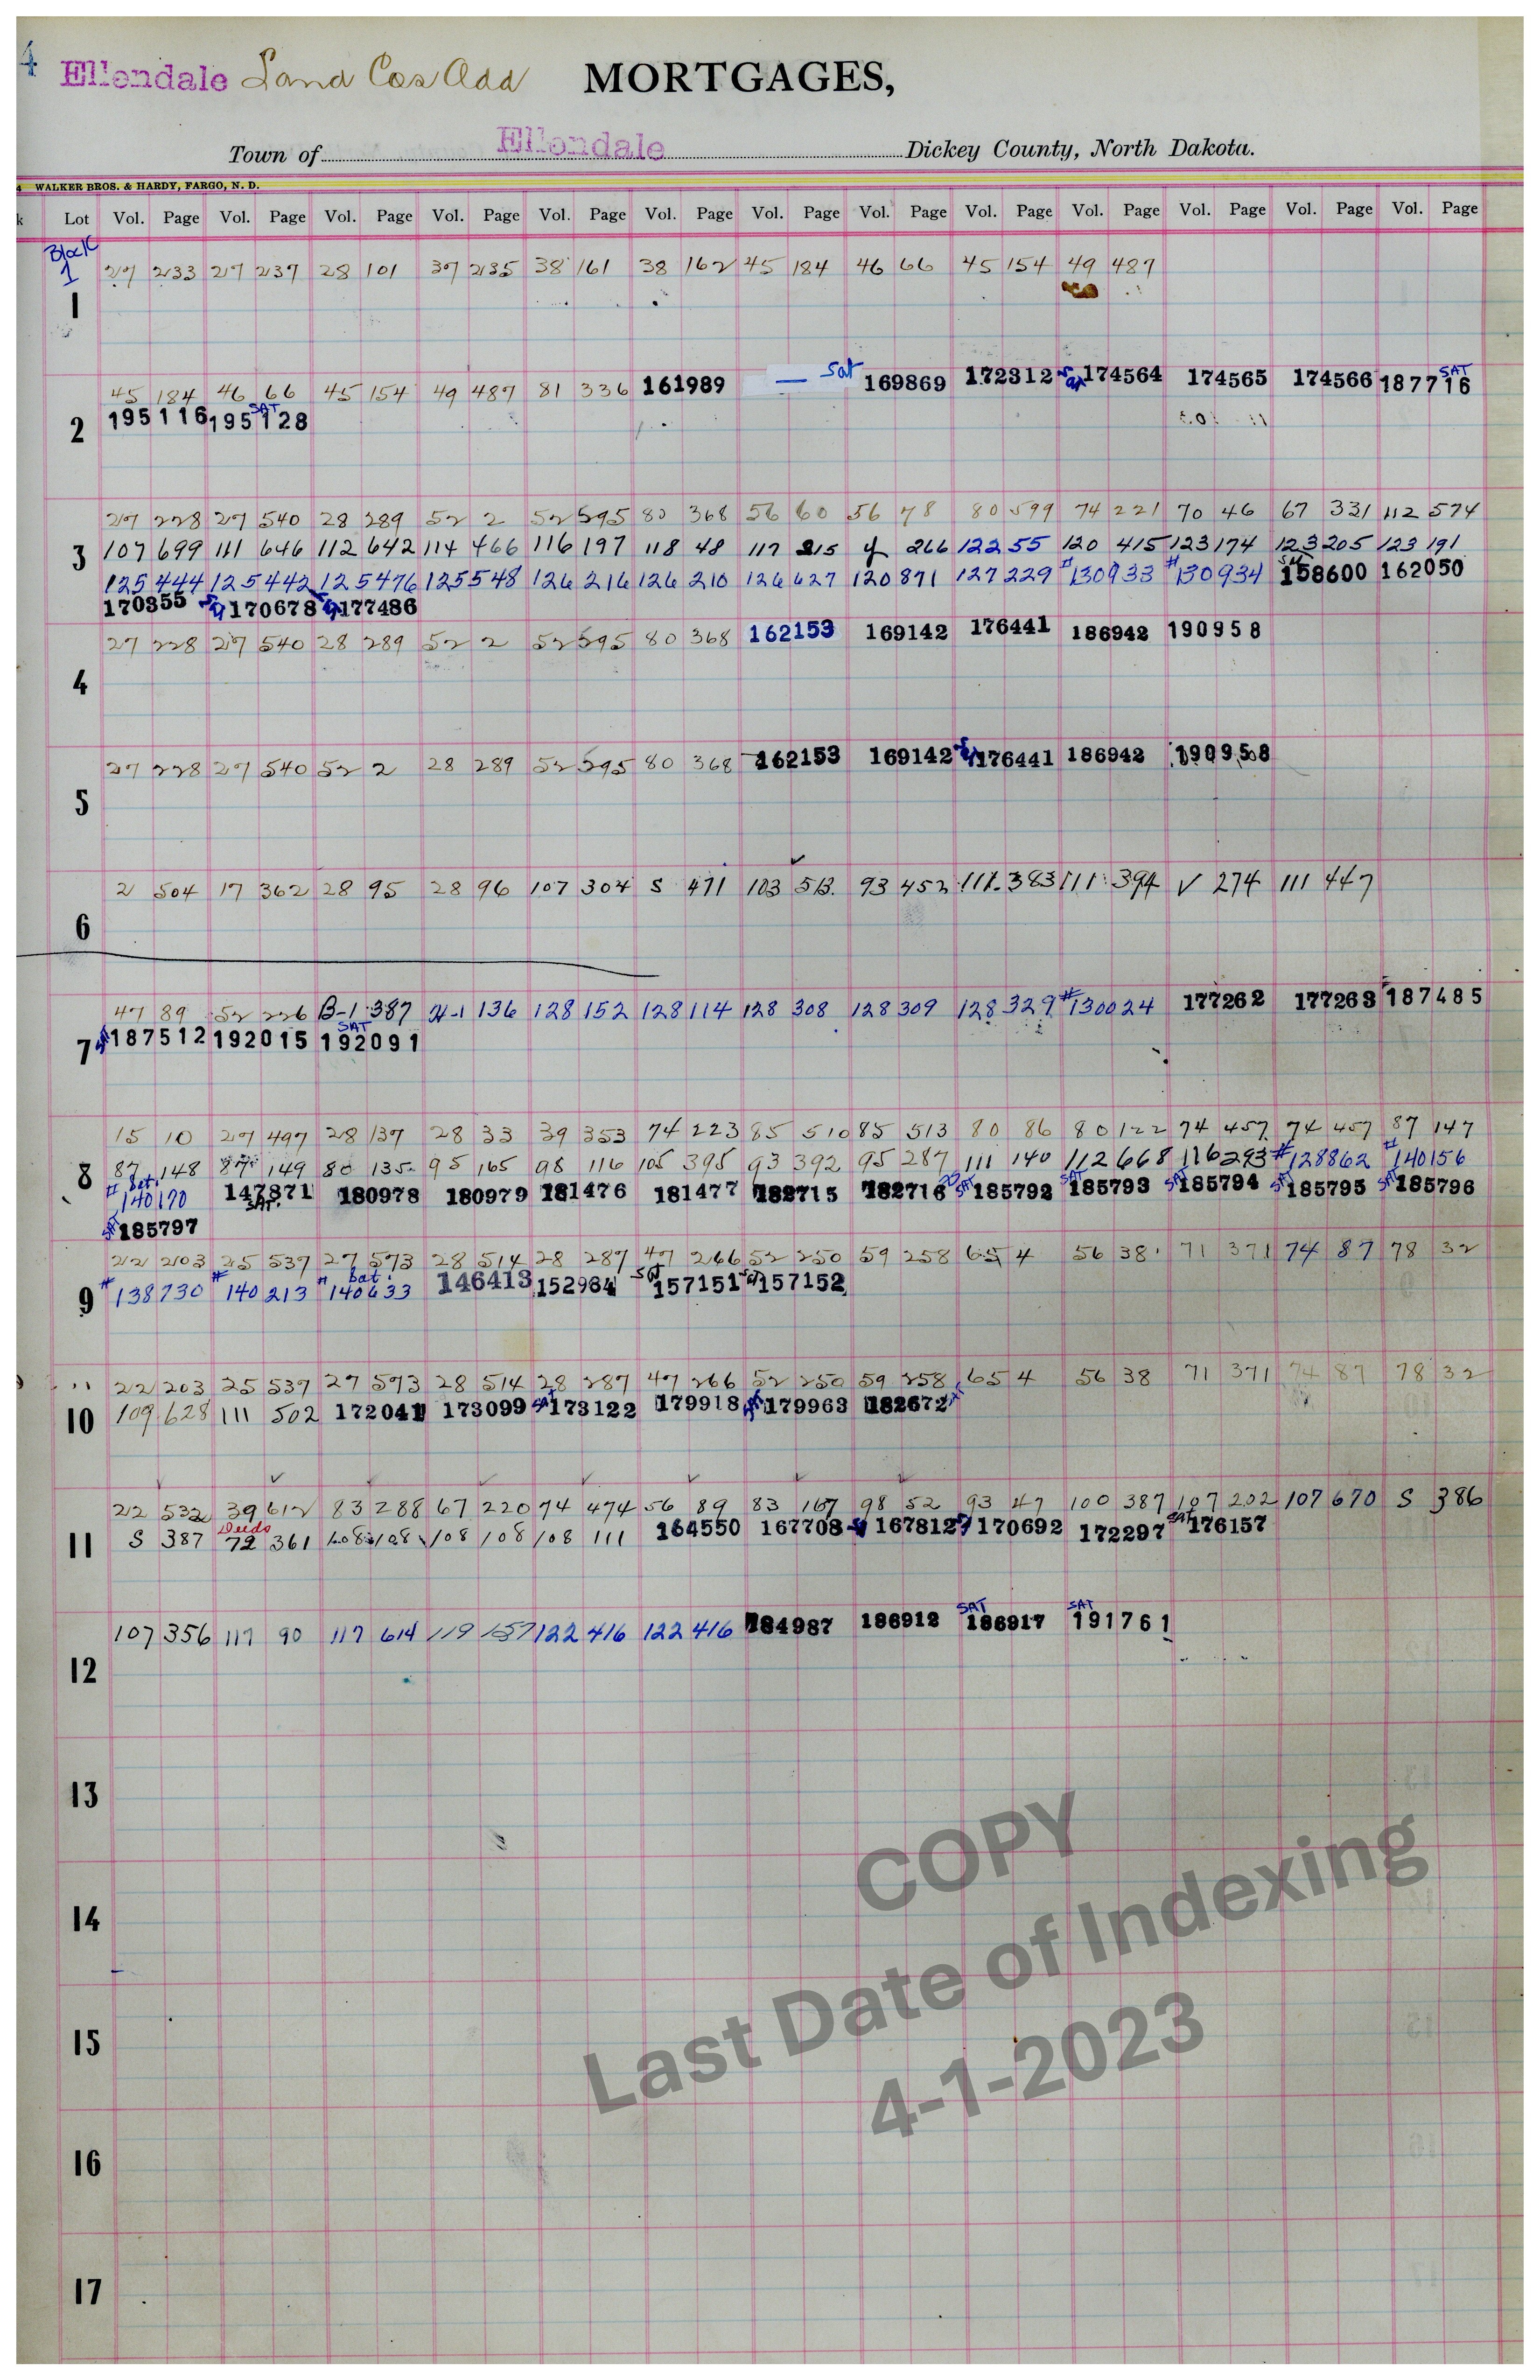 4 Ellendale Land Cos Add MORTGAGES,
Town of Ellendale Dickey County, North Dakota.
4 WALKER BROS. & HARDY, FARGO, N. D.
k Lot Vol. Page Vol. Page Vol. Page Vol. Page Vol. Page Vol. Page Vol. Page Vol. Page Vol. Page Vol. Page Vol. Page Vol. Page Vol. Page
Block
1 27 233 27 237 28 101 37 235 38 161 38 162 45 184 46 66 45 154 49 487
1
45 184 46 66 45 154 49 487 81 336 161989 — Sat 169869 172312 Sat 174564 174565 174566 SAT 187716
195116 SAT 195128
2
27 228 27 540 28 289 52 2 52 595 80 368 56 60 56 78 80 599 74 221 70 46 67 331 112 574
3 107 699 111 646 112 642 114 466 116 197 118 48 117 215 y 266 122 55 120 415 123 174 123 205 123 191
125 444 125 442 125 476 125 548 126 216 126 210 126 627 120 871 127 229 #130933 #130934 Sat 158600 162050
170355 Sat 170678 Sat 177486
27 228 27 540 28 289 52 2 52 595 80 368 162153 169142 176441 186942 190958
4
27 228 27 540 52 2 28 289 52 595 80 368 162153 169142 Sat 176441 186942 190958
5
2 504 17 362 28 95 28 96 107 304 S 471 103 513 93 452 111 383 111 394 V 274 111 447
6
47 89 52 226 B-1 387 H-1 136 128 152 128 114 128 308 128 309 128 329 #130024 177262 177263 187485
7 SAT 187512 192015 SAT 192091
15 10 27 497 28 137 28 33 39 353 74 223 85 510 85 513 80 86 80 122 74 457 74 457 87 147
8 87 148 87 149 80 135 95 165 98 116 105 395 93 392 95 287 111 140 112 668 116 293 #128862 #140156
# Sat. 140170 147871 SAT. 180978 180979 181476 181477 182715 182716 SAT 185792 SAT 185793 SAT 185794 SAT 185795 SAT 185796
SAT 185797
22 203 25 537 27 573 28 514 28 287 47 266 52 250 59 258 65 4 56 38 71 371 74 87 78 32
9 #138730 #140213 # Sat. 140633 146413 152984 Sat 157151 Sat 157152
22 203 25 537 27 573 28 514 28 287 47 266 52 250 59 258 65 4 56 38 71 371 74 87 78 32
10 109 628 111 502 172041 173099 SAT 173122 179918 SAT 179963 182672 SAT
22 532 39 612 83 288 67 220 74 474 56 89 83 167 98 52 93 47 100 387 107 202 107 670 S 386
11 S 387 Deeds 72 361 108 108 108 108 108 111 164550 167708 167812 170692 172297 SAT 176157
107 356 117 90 117 614 119 157 122 416 122 416 184987 186912 SAT 186917 SAT 191761
12
13
14
15
16
17
COPY
Last Date of Indexing
4-1-2023